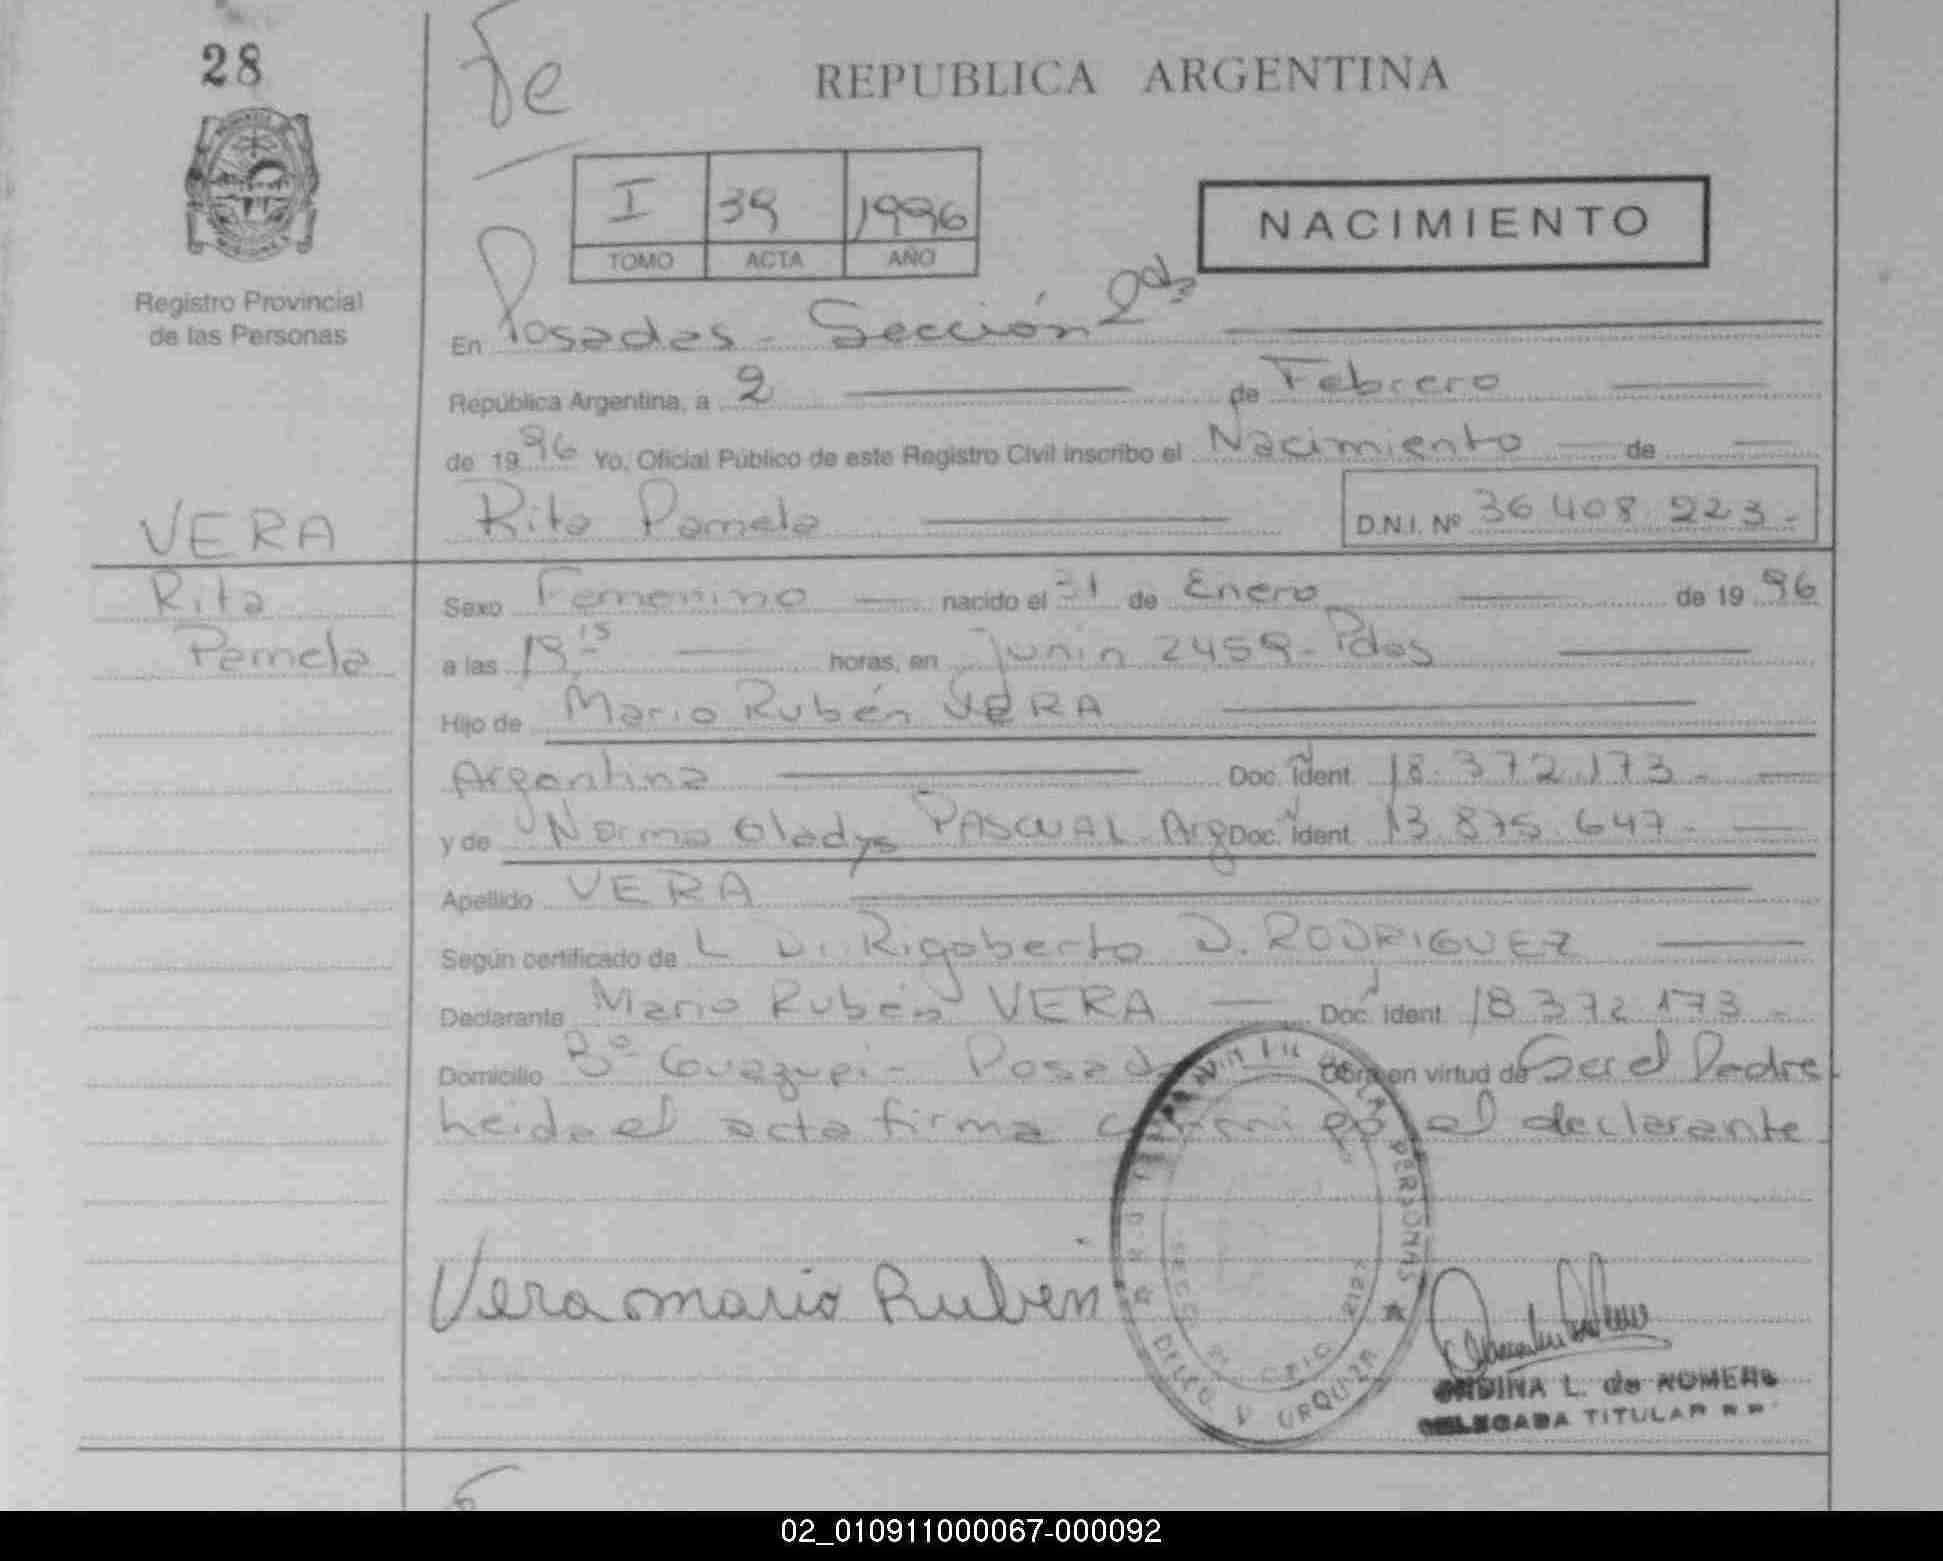 28
Fe
REPUBLICA ARGENTINA
I 39 1996
TOMO ACTA AÑO
NACIMIENTO
Registro Provincial
de las Personas
En Posadas - Sección 2da
República Argentina, a 2 de Febrero
de 1996 Yo, Oficial Público de este Registro Civil inscribo el Nacimiento de
VERA
Rita Pamela D.N.I. Nº 36 408 223.-
Rita
Pamela
Sexo Femenino nacido el 31 de Enero de 1996
a las horas, en Junin 2459 - Pdas
Hijo de Mario Rubén VERA
Argentina Doc. Ident. 18.372.173.-
y de Norma Gladys PASCUAL - Arg Doc. Ident. 13.875.647.-
Apellido VERA
Según certificado de Rigoberto D. RODRIGUEZ
Declarante Mario Rubén VERA Doc. Ident. 18.372.173.-
Domicilio Bº Posadas Obra en virtud de Ser el Padre
Leida el acta firma conmigo el declarante
Vera mario Ruben
PERSONAS
URQUIZA
ONDINA L. de ROMERO
DELEGADA TITULAR R.P.
02_010911000067-000092